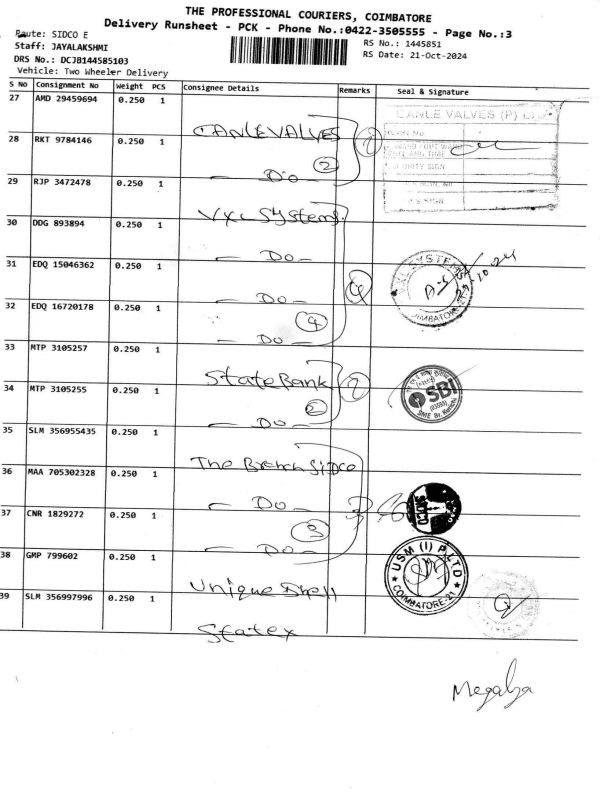 THE PROFESSIONAL COURIERS, COIMBATORE
Delivery Runsheet - PCK - Phone No.:0422-3505555 - Page No.:3
Route: SIDCO E
Staff: JAYALAKSHMI
RS No.: 1445851
DRS No.: DCJB144585103
RS Date: 21-Oct-2024
Vehicle: Two Wheeler Delivery
S No Consignment No Weight PCS Consignee Details Remarks Seal & Signature
27 AMD 29459694 0.250 1 CANLE VALVES
CANLE VALVES (P) L
28 RKT 9784146 0.250 1 — Do — 2 2
29 RJP 3472478 0.250 1 VXL Systems.
30 DDG 893894 0.250 1 — Do —
31 EDQ 15046362 0.250 1 — Do — 4
SYSTEMS
COIMBATORE
32 EDQ 16720178 0.250 1 — Do — 4
33 MTP 3105257 0.250 1 State Bank 2
SBI
SME Br. Kurichi
34 MTP 3105255 0.250 1 — Do — 2
35 SLM 356955435 0.250 1 The Branch Sidco
36 MAA 705302328 0.250 1 — Do — 3
SIDCO
37 CNR 1829272 0.250 1 — Do — 3
38 GMP 799602 0.250 1 Unique Shell
USM (I) P LTD
COIMBATORE-21
39 SLM 356997996 0.250 1 Statex